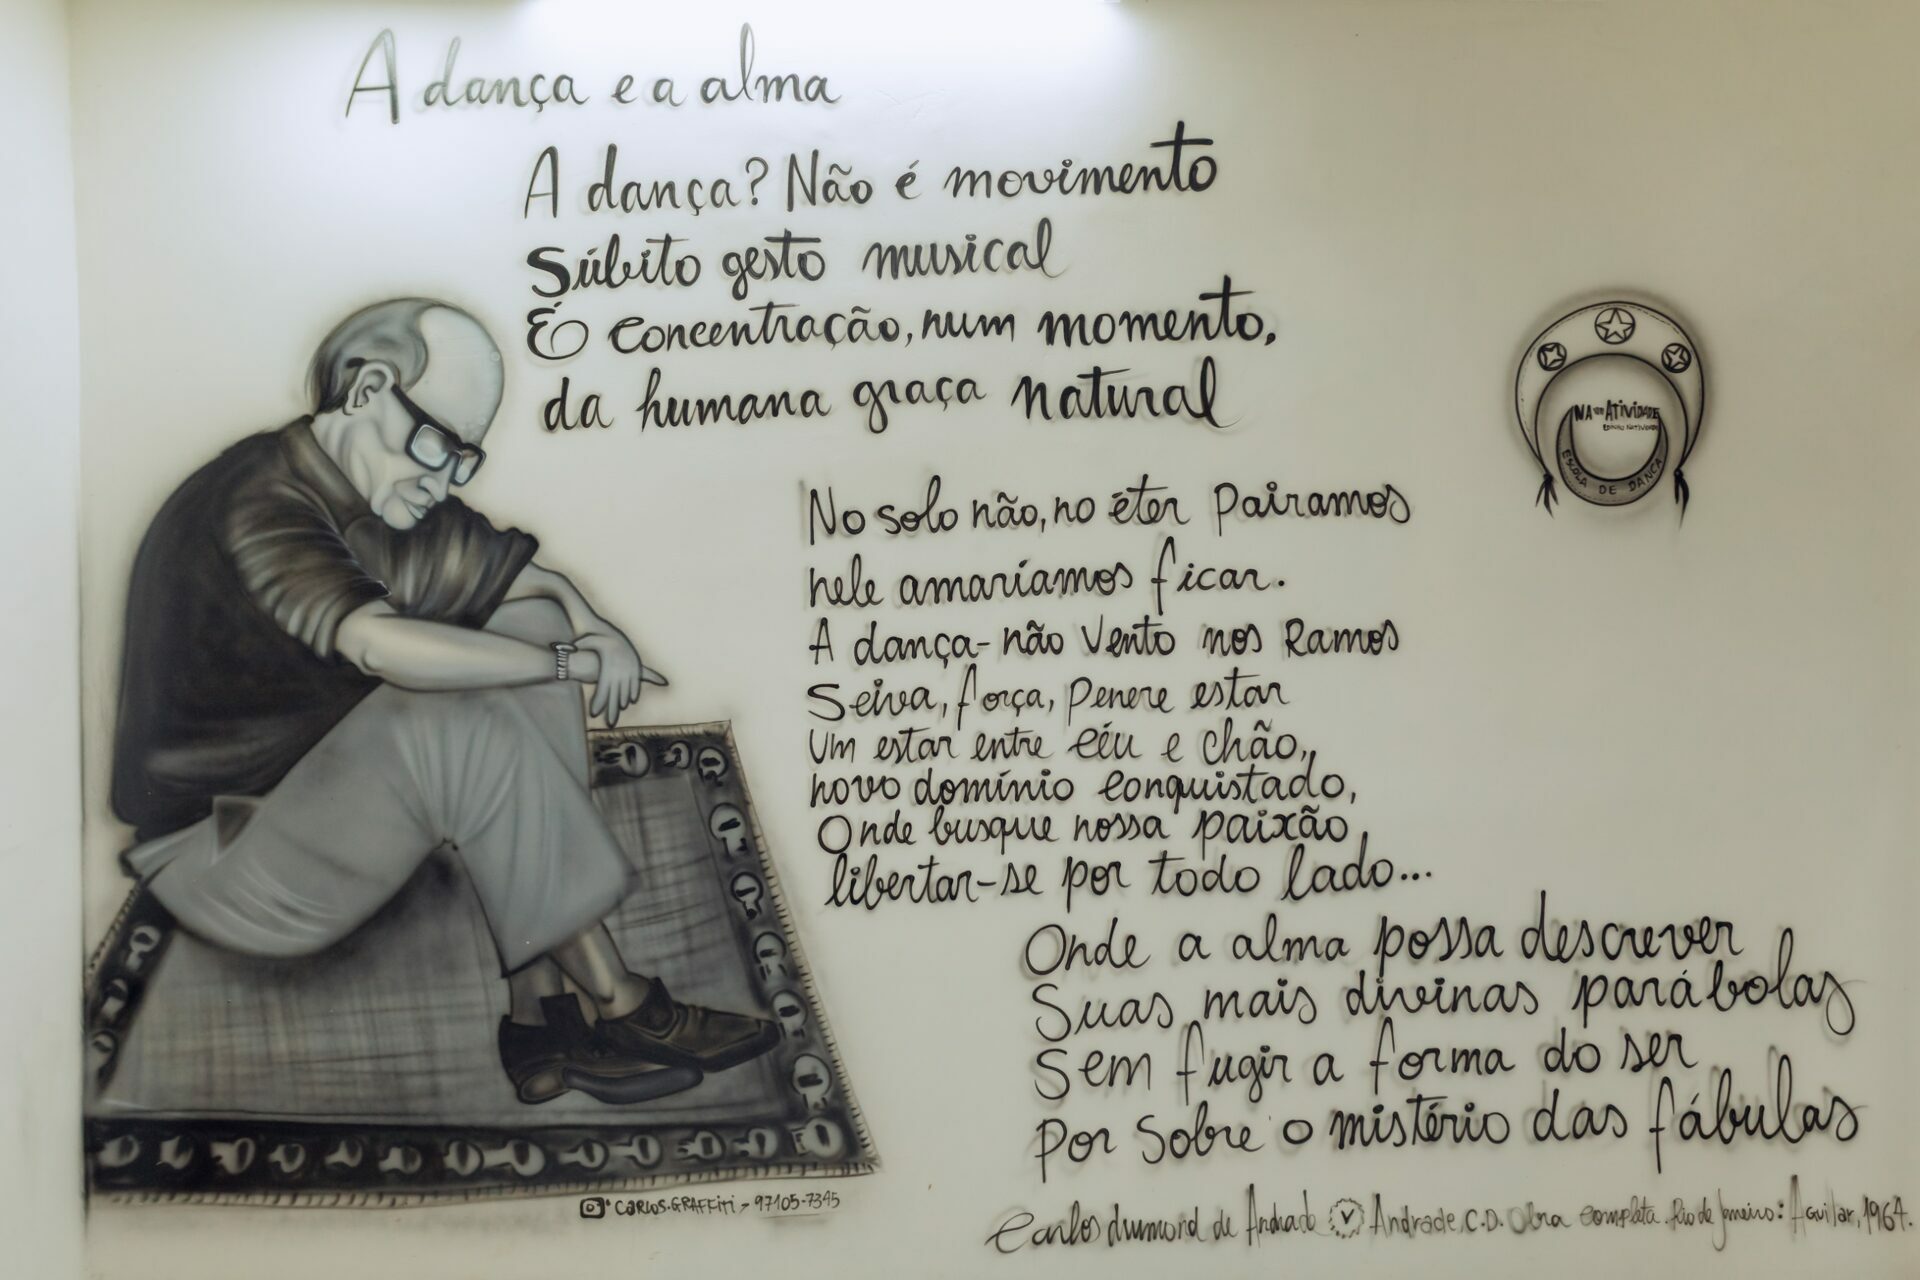 A dança e a alma
A dança? Não é movimento
Súbito gesto musical
É concentração, num momento,
da humana graça natural
No solo não, no éter pairamos
nele amaríamos ficar.
A dança - não vento nos Ramos
Seiva, força, penere estar
Um estar entre céu e chão,
novo domínio conquistado,
Onde busque nossa paixão,
libertar-se por todo lado...
Onde a alma possa descrever
Suas mais divinas parábolas
Sem fugir a forma do ser
por sobre o mistério das fábulas
Carlos drumond de Andrade Andrade, C.D. Obra completa. Rio de Janeiro: Aguilar, 1964.
CARLOS.GRAFFITI - 97105-7345
NA ATIVIDADE
ESCOLA DE DANÇA